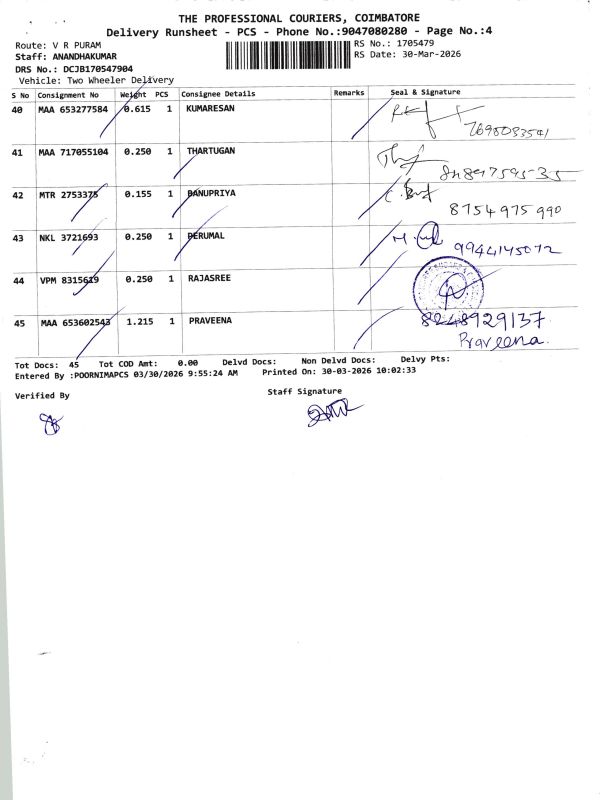 THE PROFESSIONAL COURIERS, COIMBATORE
Delivery Runsheet - PCS - Phone No.:9047080280 - Page No.:4
Route: V R PURAM
RS No.: 1705479
Staff: ANANDHAKUMAR
RS Date: 30-Mar-2026
DRS No.: DCJB170547904
Vehicle: Two Wheeler Delivery
S No Consignment No Weight PCS Consignee Details Remarks Seal & Signature
40 MAA 653277584 0.615 1 KUMARESAN
7698083541
41 MAA 717055104 0.250 1 THARTUGAN
42 MTR 2753375 0.155 1 BANUPRIYA
8754975990
43 NKL 3721693 0.250 1 PERUMAL
9944145072
44 VPM 8315619 0.250 1 RAJASREE
45 MAA 653602543 1.215 1 PRAVEENA 8248929137
Praveena.
Tot Docs: 45 Tot COD Amt: 0.00 Delvd Docs: Non Delvd Docs: Delvy Pts:
Entered By :POORNIMAPCS 03/30/2026 9:55:24 AM Printed On: 30-03-2026 10:02:33
Verified By Staff Signature